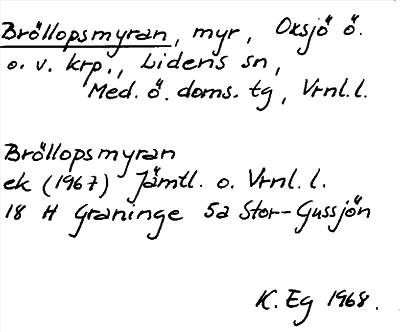 Bröllopsmyran, myr, Oxsjö ö.
o. v. krp., Lidens sn,
Med. ö. doms. tg, Vrnl.l.
Bröllopsmyran
ek (1967) Jämtl. o. Vrnl. l.
18 H Graninge 5a Stor-Gussjön
K. Eg 1968.